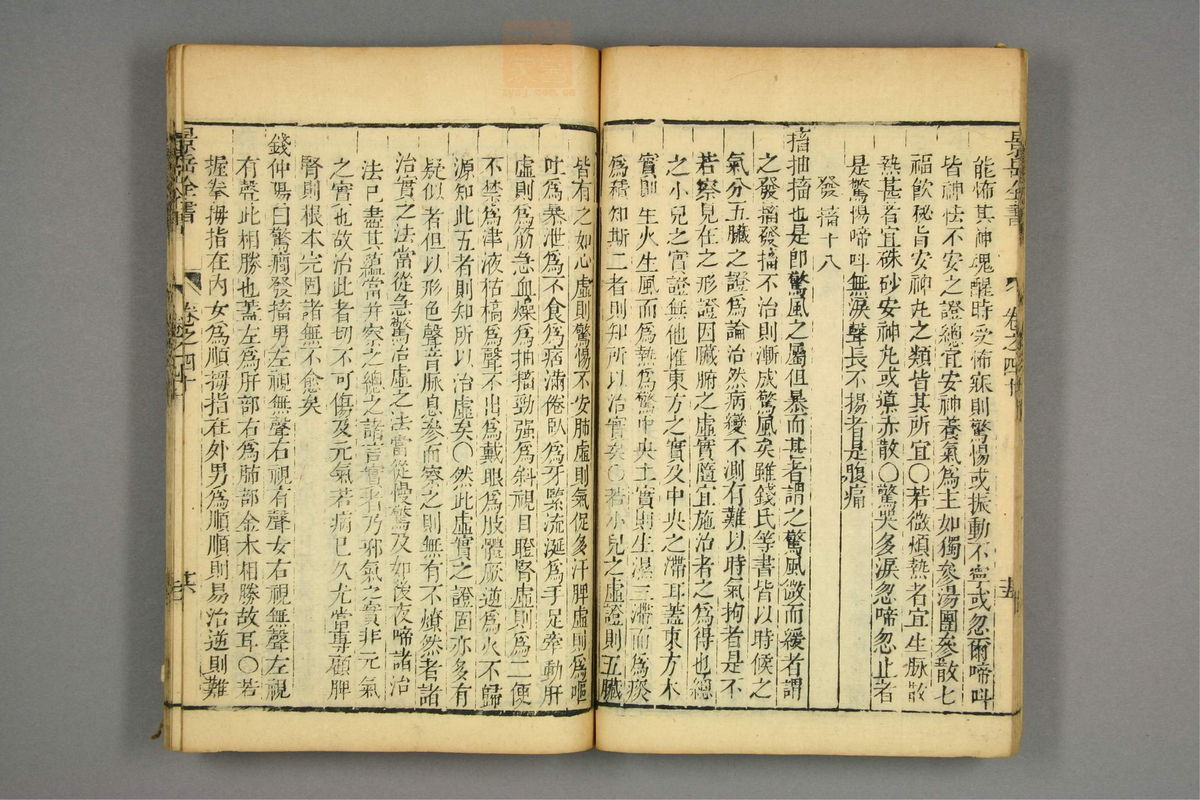 能怖其神魂醒時受怖寐則驚惕或振動不寧或忽爾啼叫
皆神怯不安之證總宜安神養氣爲主如獨參湯團參散七
福飲秘旨安神丸之類皆其所宜〇若微煩熱者宜生脉散
熱甚者宜硃砂安神丸或導赤散〇驚哭多淚忽啼忽止者
是驚惕啼叫無淚聲長不揚者是腹痛
發搐十八
搐抽搐也是卽驚風之屬但暴而甚者謂之驚風微而緩者謂
之發搐發搐不治則漸成驚風矣雖錢氏等書皆以時候之
氣分五臟之證爲論治然病變不測有難以時氣拘者是不
若察見在之形證因臟腑之虛實隨宜施治者之爲得也總
之小兒之實證無他惟東方之實及中央之滯耳蓋東方木
實則生火生風而爲熱爲驚中央土實則生濕生滯而爲痰
爲積知斯二者則知所以治實矣〇若小兒之虛證則五臟
皆有之如心虛則驚惕不安肺虛則氣促多汗脾虛則爲嘔
吐爲暴泄爲不食爲痞滿倦臥爲牙緊流涎爲手足牽動肝
虛則爲筋急血燥爲抽搐勁强爲斜視目瞪腎虛則爲二便
不禁爲津液枯槁爲聲不出爲戴眼爲肢體厥逆爲火不歸
源知此五者則知所以治虛矣〇然此虛實之證固亦多有
疑似者但以形色聲音脉息參而察之則無有不燎然者諸
治實之法當從急驚治虛之法當從慢驚及如後夜啼諸治
法已盡其蘊當幷察之總之諸言實者乃邪氣之實非元氣
之實也故治此者切不可傷及元氣若病已久尤當專顧脾
腎則根本完固諸無不愈矣
錢仲陽曰驚癇發搐男左視無聲右視有聲女右視無聲左視
有聲此相勝也蓋左爲肝部右爲肺部金木相勝故耳〇若
握拳拇指在內女爲順拇指在外男爲順順則易治逆則難
景岳全書
卷之四十
景岳全書
卷之四十